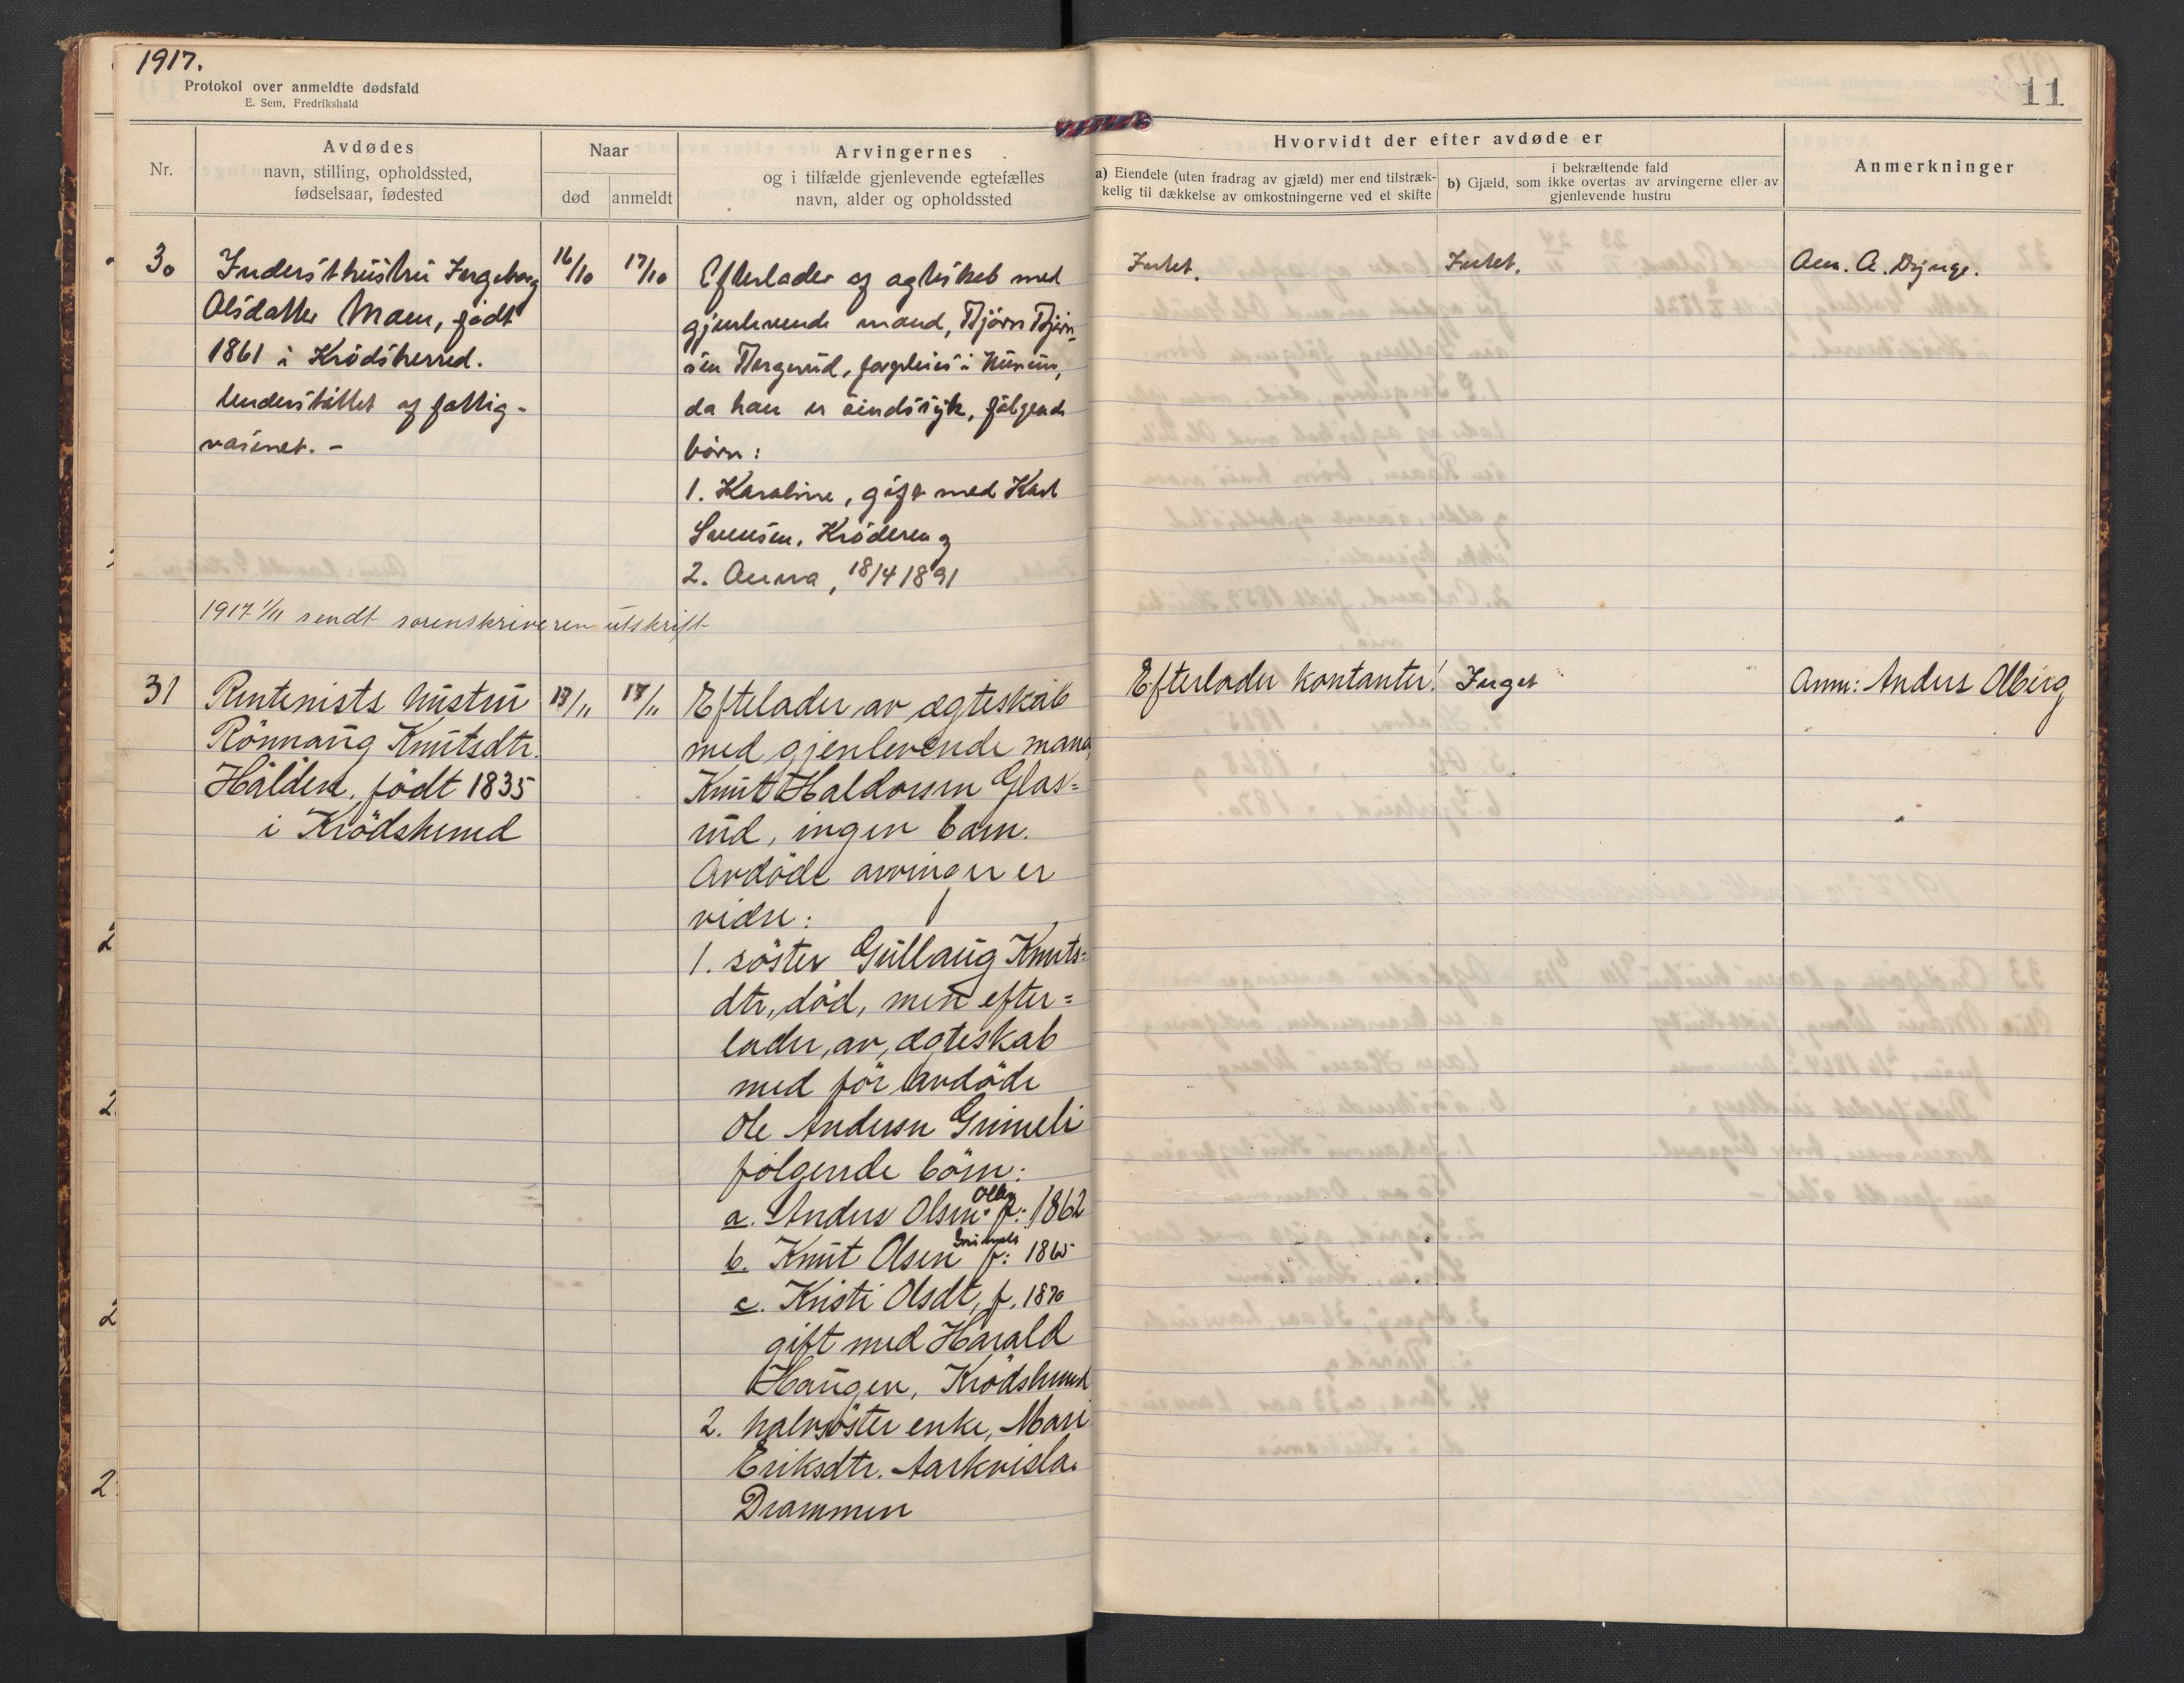 1917.
Protokol over anmeldte dødsfald
E. Sem, Fredrikshald
11
Nr.
Avdødes
navn, stilling, opholdssted,
fødselsaar, fødested
Naar
død
anmeldt
Arvingernes
og i tilfælde gjenlevende egtefælles
navn, alder og opholdssted
Hvorvidt der efter avdøde er
a) Eiendele (uten fradrag av gjæld) mer end tilstræk-
kelig til dækkelse av omkostningerne ved et skifte
i bekræftende fald
b) Gjæld, som ikke overtas av arvingerne eller av
gjenlevende hustru
Anmerkninger
30
Indersthustru Ingeborg
Olsdatter Moen, født
1861 i Krödsherred.
Understöttet af fattig-
væsenet. -
16/10
17/10
Efterlader af ægteskab med
gjenlevende mand, Björn Björn-
sen Bergerud,
da han er sindssyk, følgende
børn:
1. Karoline, gift med Karl
Svensen, Kröderen og
2. Anna, 18/4 1891
Intet.
Intet.
Anm. A.
1917 1/11 sendt sorenskriveren utskrift
31
Rentenists hustru
Rönnaug Knutsdtr.
Halden, født 1835
i Krödsherred
13/11
17/11
Eftelader av ægteskab
med gjenlevende mand,
Knut Haldorsen Glas=
rud, ingen barn.
Avdöde arvinger er
vidre:
1. söster Gullaug Knuts=
dtr, död, men efter=
lader, av, ægteskab
med för avdöde
Ole Andersen Grimeli
følgende börn:
a. Anders Olsen Olberg f: 1862
b. Knut Olsen Grimeli f: 1865
c. Kristi Olsdt, f. 1870
gift med Harald
Haugen, Krödsherred
2. halvsöster enke, Mari
Eriksdtr. Aarkvisla.
Drammen
Efterlader kontanter!
Inget
Anm: Anders Olberg